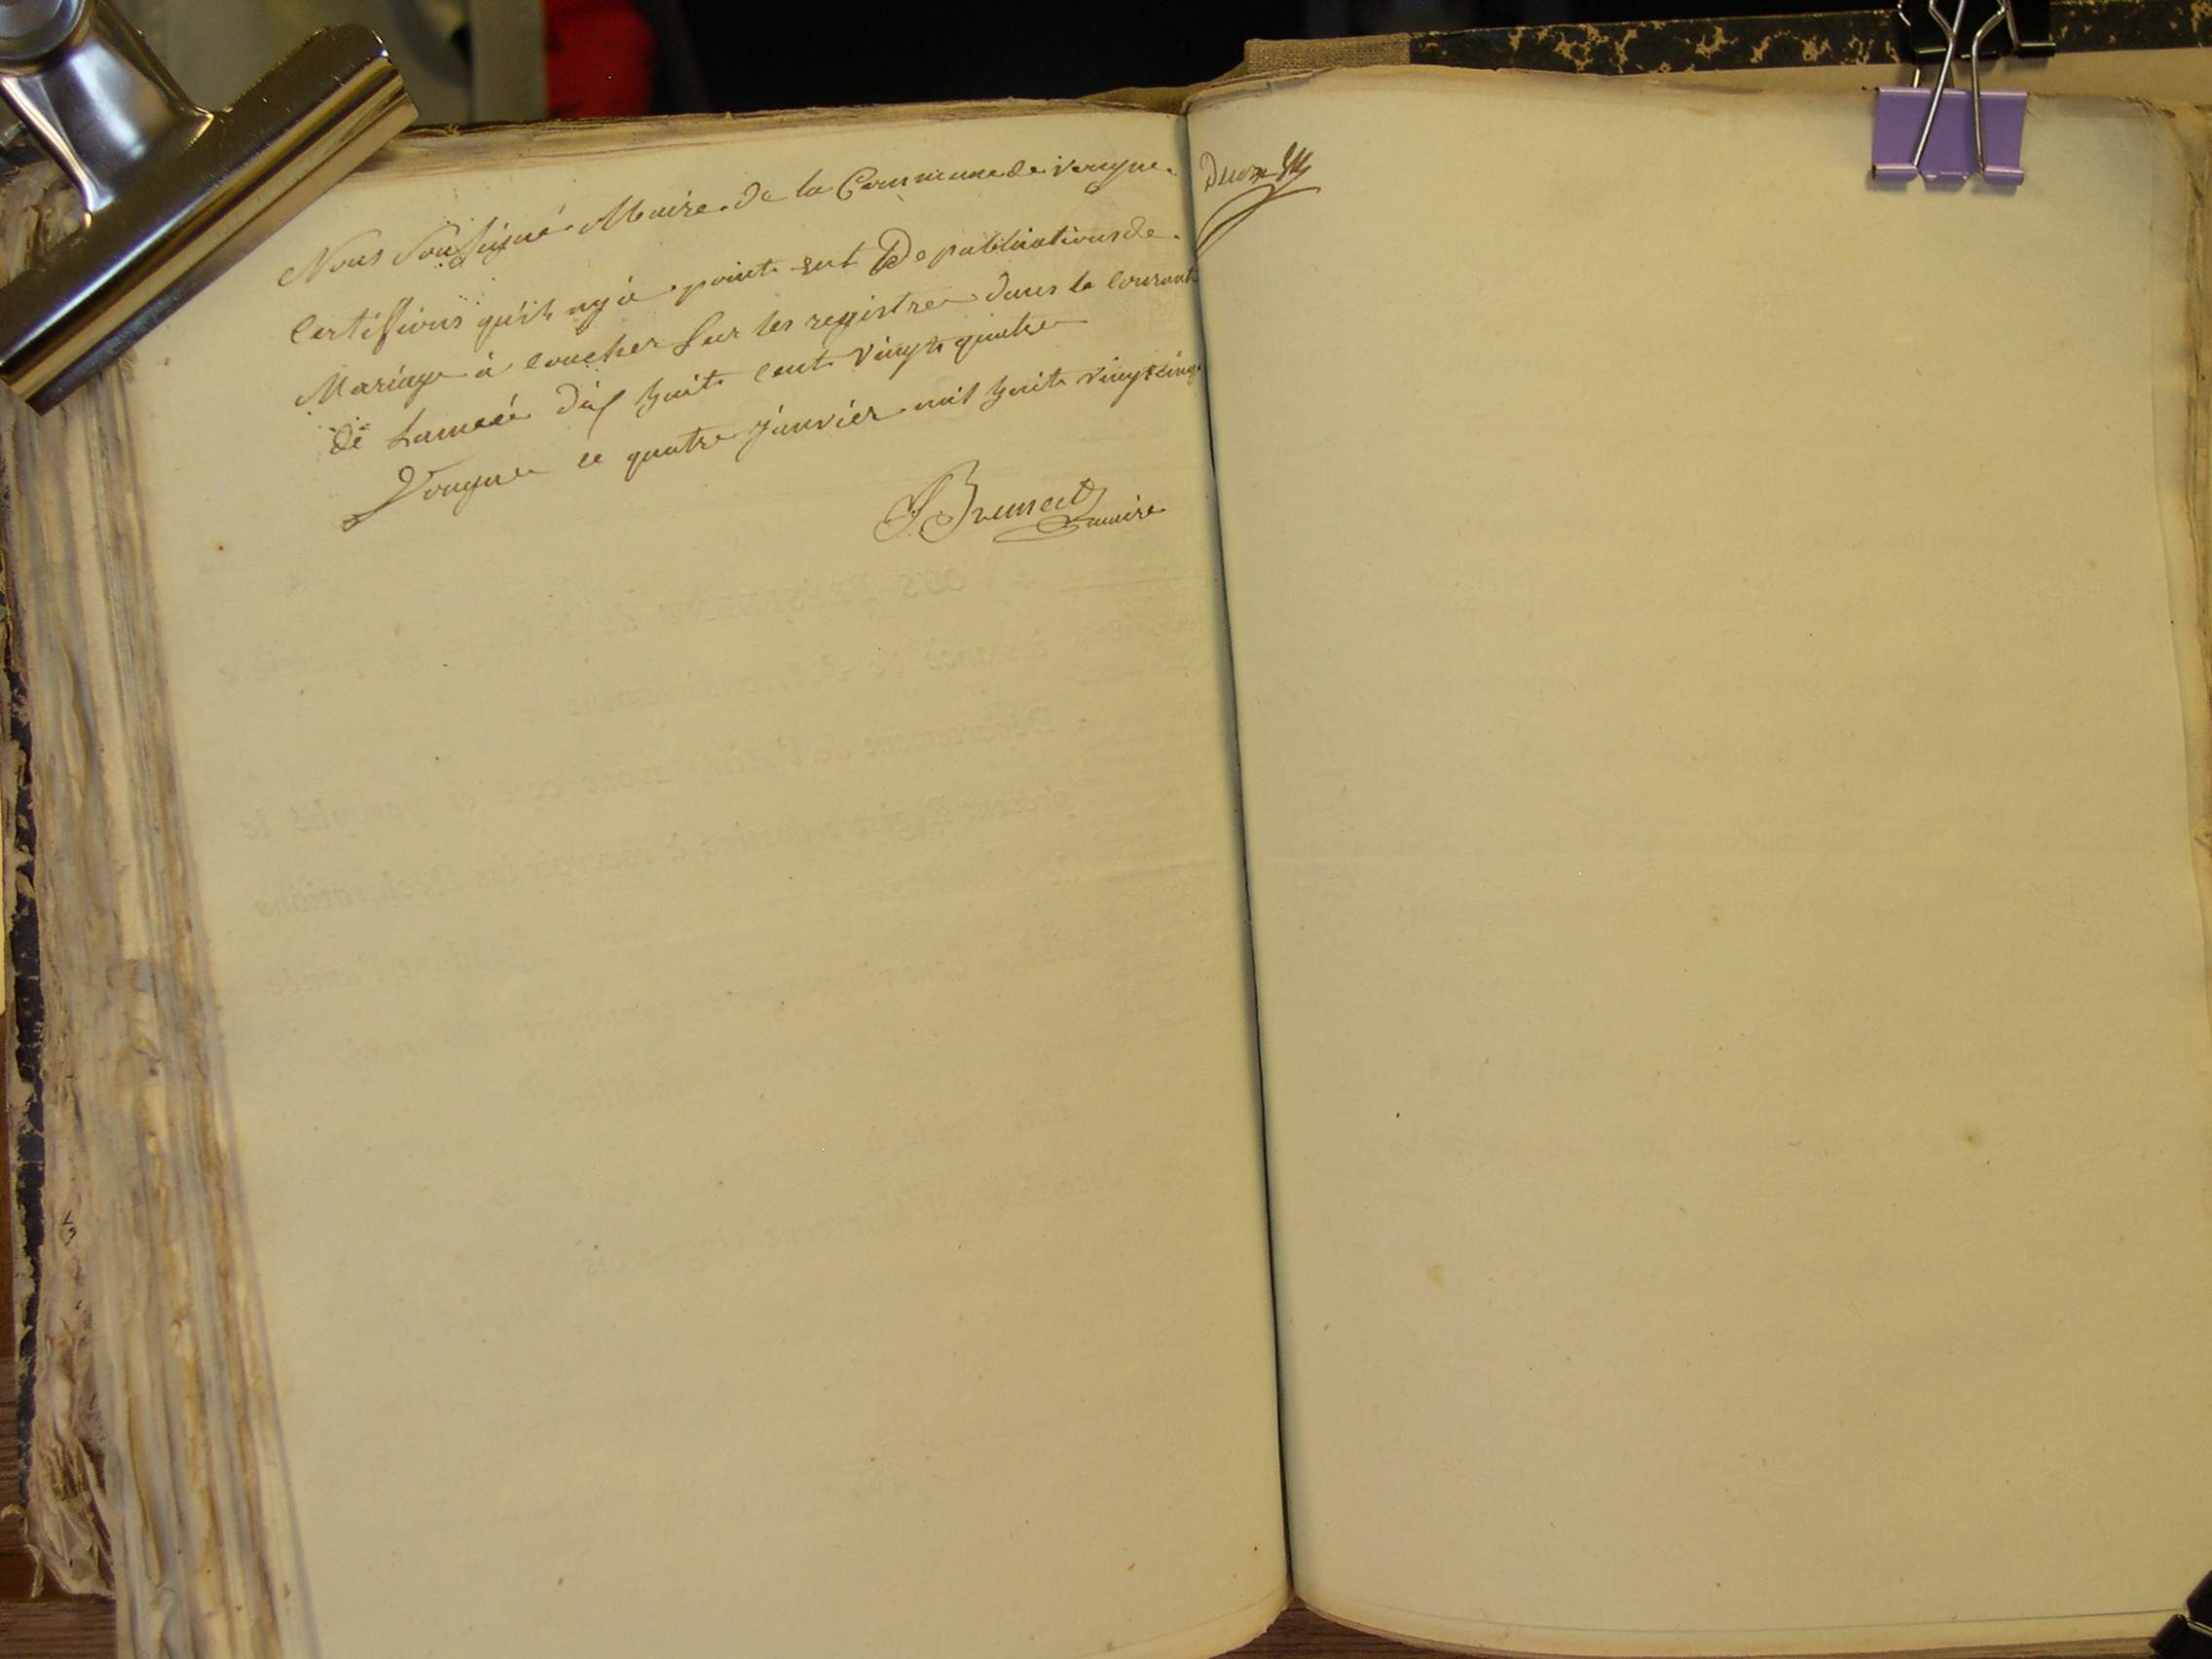 Nous Soussigné Maire de la Commune de Vougue
Certiffions quil ny a point eut De publications de
Mariage à coucher Sur les registre dans le courant
de Lanneé dix huit cent vingt quatre
Vougue ce quatre janvier mil huit vingt cinq
Brunect maire